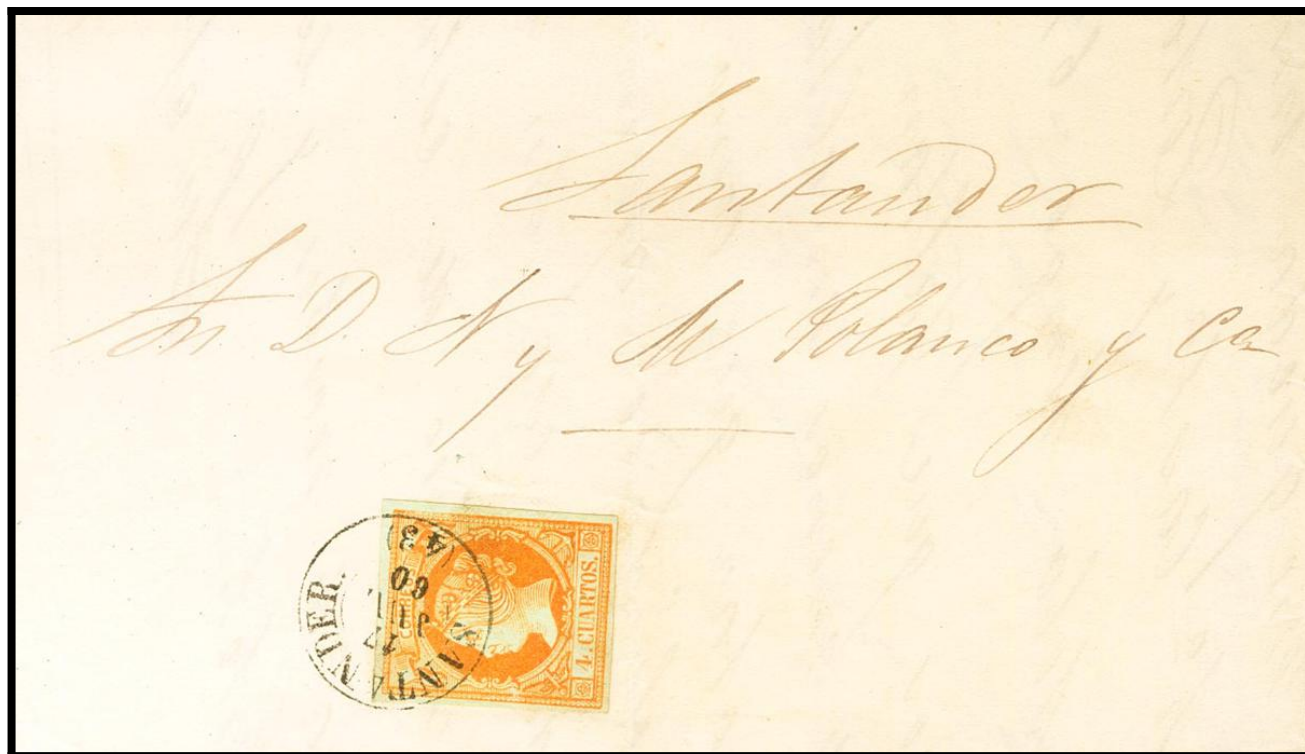 Santander
Sr. D. N y M. Polanco y Ca
4. CUARTOS.
SANTANDER.
17
JUL.
60
(43)